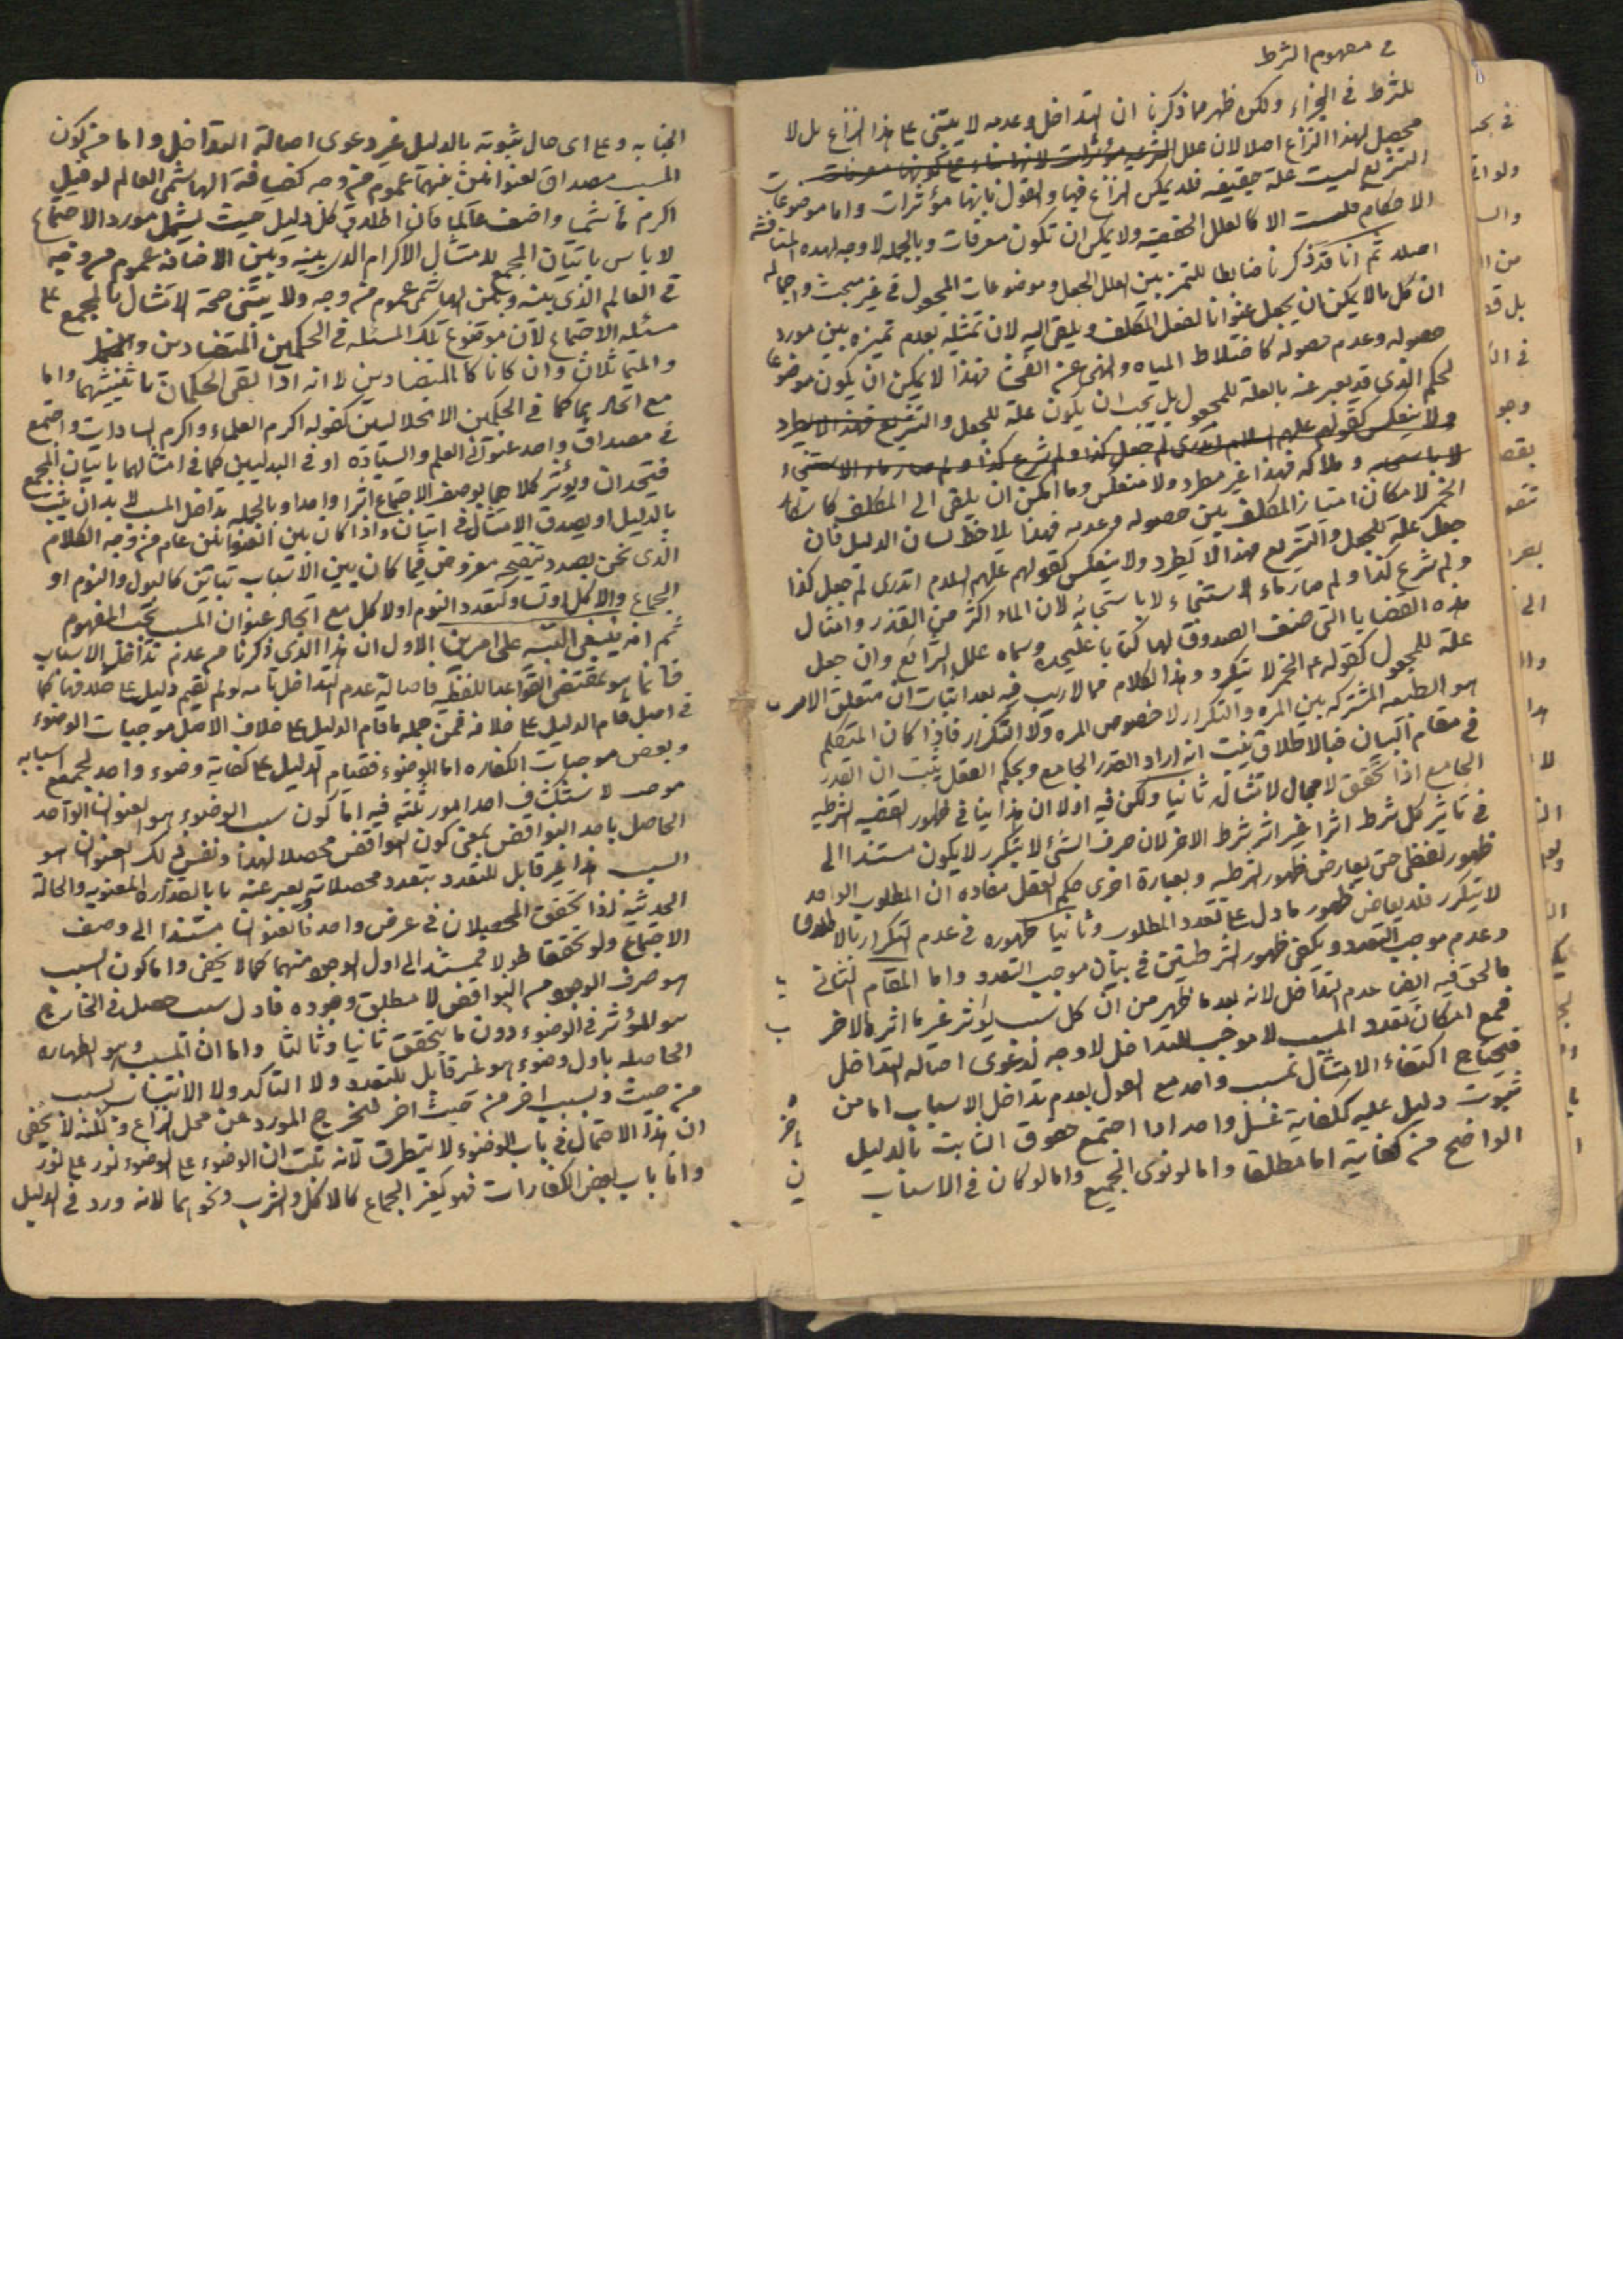 في مفهوم الشرط
للشرط في الجزاء ولكن ظهر مما ذكرنا ان التداخل وعدمه لا يبتنى على هذا النزاع بل لا
محصل لهذا النزاع اصلا لان علل الشرعيه مؤثرات
التشريع ليست علة حقيقيه فلا يمكن النزاع فيها والقول بانها مؤثرات واما موضوعات
الاحكام فليست الا كالعلل الحقيقيه ولا يمكن ان تكون معرفات وبالجمله لا وجه لهذه المناقشه
اصلا ثم انا قد ذكرنا ضابطا للتميز بين العلل الجعل وموضوعات المجعول في غير مبحث واجماله
ان كل ما لا يمكن ان يجعل عنوانا لفعل المكلف ويلقى اليه لان تمثيله بعدم تميزه بين مورد
حصوله وعدم حصوله كاختلاط المياه والنهى عن الفحشا فهذا لا يمكن ان يكون موضوعا
لحكم الذي قد يعبر عنه بالعلة للمجعول بل يجب ان يكون علة للجعل والتشريع فهذا لا يطرد
ولا ينعكس كقولهم عليهم السلام اتدرى لم جعل كذا ولم شرع كذا ولم صار ماء الاستنجاء
لا باس به وملاكه فهذا غير مطرد ولا منعكس وما امكن ان يلقى الى المكلف كاسكار
الخمر لامكان امتياز المكلف بين حصوله وعدمه فهذا يلاحظ لسان الدليل فان
جعل علة للجعل والتشريع فهذا لا يطرد ولا ينعكس كقولهم عليهم السلام اتدرى لم جعل كذا
ولم شرع كذا ولم صار ماء الاستنجاء لا باس به لان الماء اكثر من القذر وامثال
هذه القضايا التي صنف الصدوق لها كتابا عليحده وسماه علل الشرائع وان جعل
علة للمجعول كقوله الخمر لا يتكرر وهذا الكلام مما لا ريب فيه بعد اثبات ان متعلق الامر
هو الطبيعه المشتركه بين المره والتكرار لا خصوص المره ولا التكرار فاذا كان المتكلم
في مقام البيان فبالاطلاق يثبت انه اراد القدر الجامع وبحكم العقل يثبت ان القدر
الجامع اذا تحقق لا مجال لامتثاله ثانيا ولكن فيه اولا ان هذا ينافي ظهور القضيه الشرطيه
في تاثير كل شرط اثرا غير اثر شرط الاخر لان صرف الشئ لا يتكرر لا يكون مستندا الى
ظهور لفظي حتى يعارض ظهور الشرطيه وبعبارة اخرى حكم العقل مفاده ان المطلوب الواحد
لا يتكرر فلا يعارض ظهور ما دل على تعدد المطلوب وثانيا ظهوره في عدم التكرار بالاطلاق
وعدم موجب التعدد ويكفى ظهور الشرطيتين في بيان موجب التعدد واما المقام الثاني
فالحق فيه ايضا عدم التداخل لانه بعد ما ظهر من ان كل سبب يؤثر غير ما اثره الاخر
فمع امكان تعدد المسبب لا موجب للتداخل لا وجه لدعوى اصالة التداخل
فيحتاج اكتفاء الامتثال بمسبب واحد مع القول بعدم تداخل الاسباب اما من
ثبوت دليل عليه ككفاية غسل واحد اذا اجتمع حقوق الثابت بالدليل
الواضح من كفايته اما مطلقا واما لو نوى الجميع واما لو كان في الاسباب
الجنابه وعلى اى حال ثبوته بالدليل غير دعوى اصالة التداخل واما من كون
المسبب مصداق لعنوانين بينهما عموم من وجه كضيافة الهاشمي العالم لو قيل
اكرم هاشميا واضف عالما فان اطلاق كل دليل حيث يشمل مورد الاجتماع
لا باس باتيان المجمع لامتثال الاكرام الذى بينه وبين الاضافه عموم من وجه
في العالم الذي بينه وبين الهاشمى عموم من وجه ولا يبتنى صحة الامتثال بالمجمع على
مسئله الاجتماع لان موضوع تلك المسئله في الحكمين المتضادين
والمتماثلان وان كانا كالمتضادين لا انه اذا بقى الحكمان باثنينيتهما واما
مع اتحادهما كما في الحكمين الانحلاليين كقوله اكرم العلماء واكرم السادات واجتمع
في مصداق واحد عنوانى العلم والسيادة او في البدليين كما في امثالهما باتيان المجمع
فيتحدان ويؤثر كلاهما بوصف الاجتماع اثرا واحدا وبالجمله تداخل المسبب لا بد ان يثبت
بالدليل او يصدق الامتثال في اتيان واذا كان بين العنوانين عام من وجه الكلام
الذى نحن بصدد تنقيحه مفروض فيما كان بين الاسباب تباين كالبول والنوم او
الجماع والاكل او تساو كتعدد النوم او لا كل مع اتحاد عنوان المسبب بحسب المفهوم
ثم انه ينبغى التنبيه على امرين الاول ان هذا الذى ذكرنا من عدم تداخل الاسباب
فانما هو بمقتضى القواعد اللفظيه فاصالة عدم التداخل تامه لو لم نقيم دليل على خلافها كما
في اصيل قام الدليل على خلافه فمن جمله ما قام الدليل على خلاف الاصل موجبات الوضوء
وبعض موجبات الكفاره اما الوضوء فقيام الدليل على كفاية وضوء واحد لجميع اسبابه
موجب لاستكشاف احد امور ثلثه فيه اما كون سبب الوضوء هو العنوان الواحد
الحاصل باحد النواقض بمعنى كون النواقض محصلا لهذا ونفس ذلك العنوان هو
السبب هذا غير قابل للتعدد بتعدد محصلاته ويعبر عنه بالقذاره المعنويه والحالة
الحدثيه فاذا تحقق المحصلان في عرض واحد فالعنوان مستندا الى وصف
الاجتماع ولو تحققا طولا فمستند الى اول الوجود منهما كما لا يخفى واما كون السبب
هو صرف الوجود من النواقض لا مطلق وجوده فاول سبب حصل في الخارج
هو المؤثر في الوضوء دون ما يتحقق ثانيا وثالثا واما ان المسبب وهو الطهاره
الحاصله باول وضوء هو غير قابل للتعدد ولا التاكد ولا الانتساب بسبب
من حيث وبسبب اخر من حيث اخر فيخرج المورد عن محل النزاع ولكنه لا يخفى
ان هذا الاحتمال في باب الوضوء لا يتطرق لانه ثبت ان الوضوء على الوضوء نور على نور
واما باب بعض الكفارات فهو كغير الجماع كالاكل والشرب ونحوهما لانه ورد في الدليل